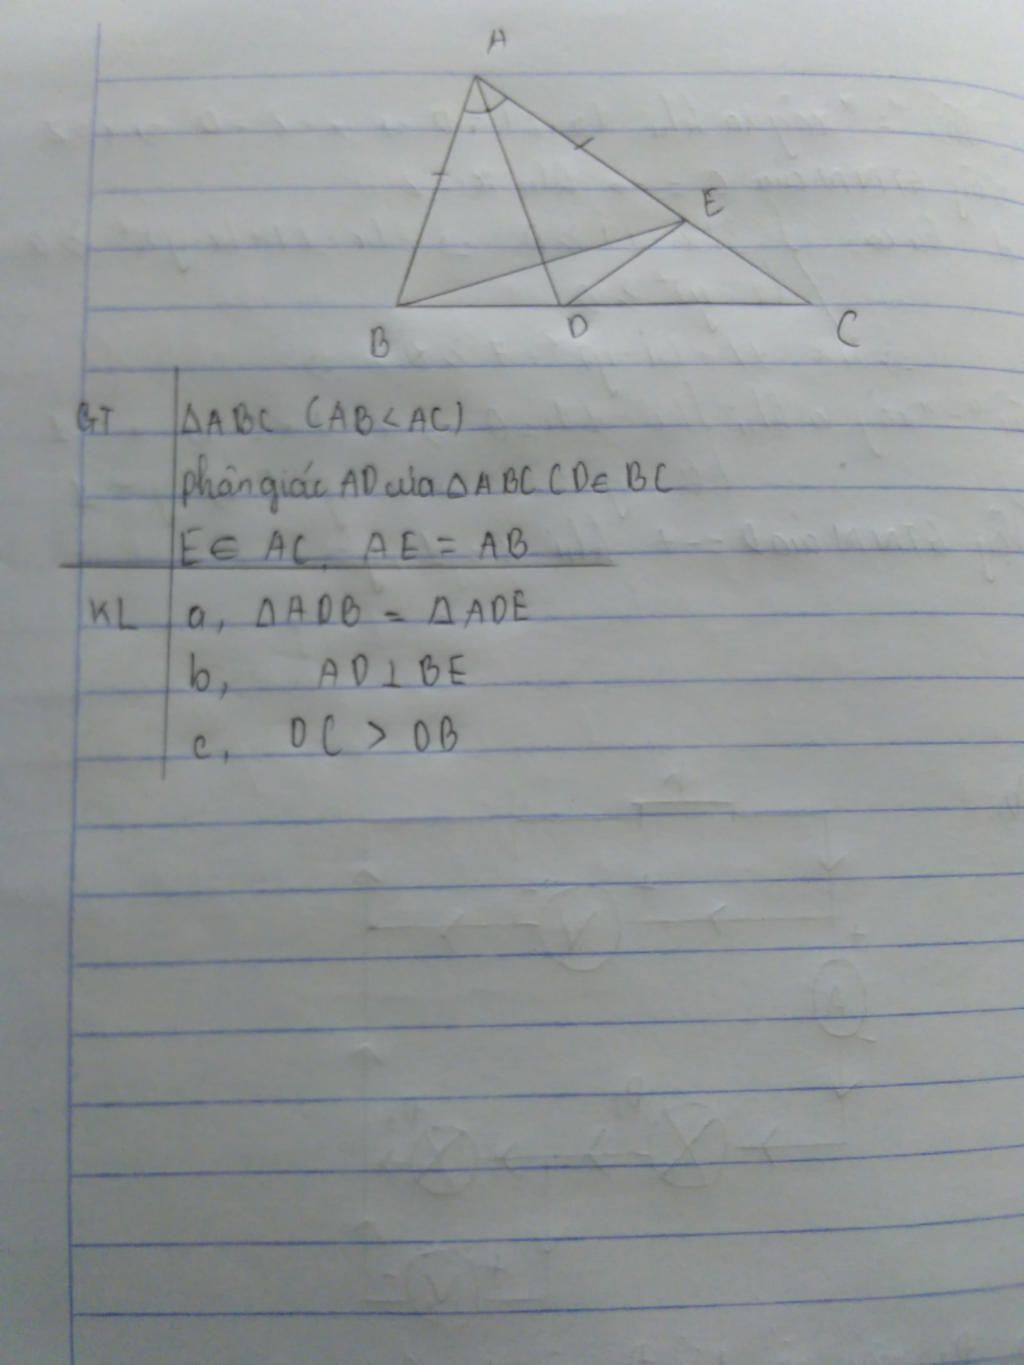 A
E
B
D
C
GT
ΔABC (AB < AC)
phân giác AD của ΔABC (D∈ BC
E∈ AC, AE = AB
KL
a, ΔADB = ΔADE
b, AD ⊥ BE
c, DC > DB